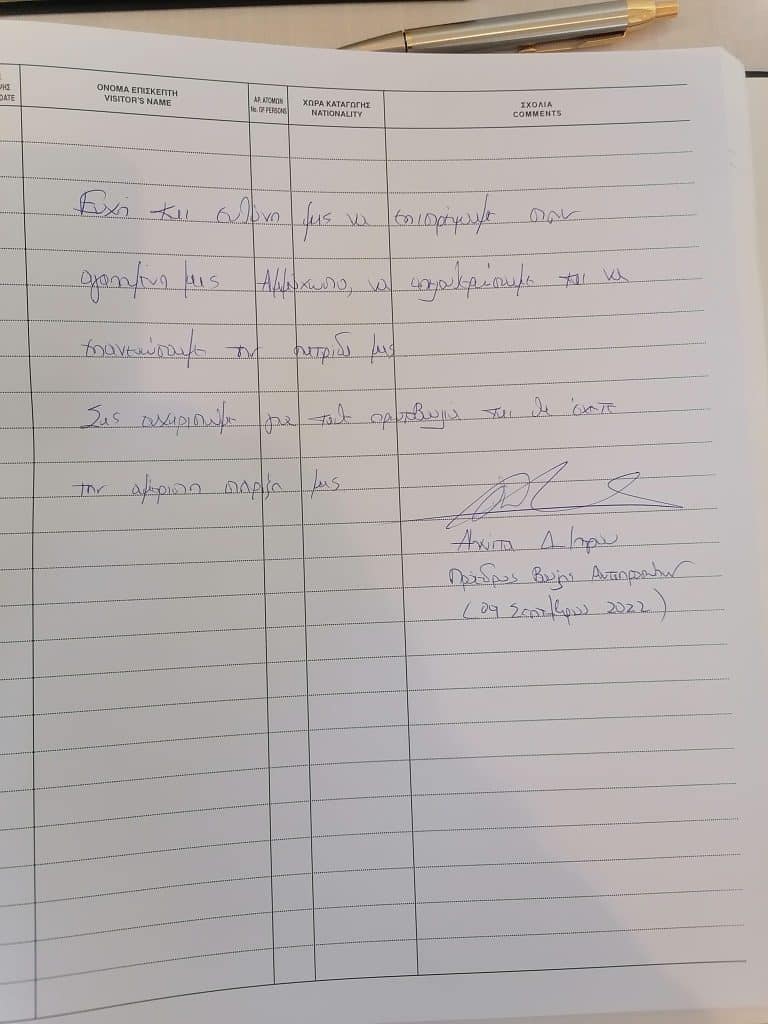 ΟΝΟΜΑ ΕΠΙΣΚΕΠΤΗ
VISITOR'S NAME
ΑΡ. ΑΤΟΜΩΝ
No. OF PERSONS
ΧΩΡΑ ΚΑΤΑΓΩΓΗΣ
NATIONALITY
ΣΧΟΛΙΑ
COMMENTS
Ευχή και ευθύνη μας να επιστρέψουμε στην
αγαπημένη μας Αμμόχωστο, να απαλλαγούμε και να
επανενώσουμε την πατρίδα μας
Σας συγχαίρουμε για την πρωτοβουλία και θα έχετε
την αμέριστη στήριξη μας
Αννίτα Δημητρίου
Πρόεδρος Βουλής Αντιπροσώπων
(09 Σεπτεμβρίου 2022)